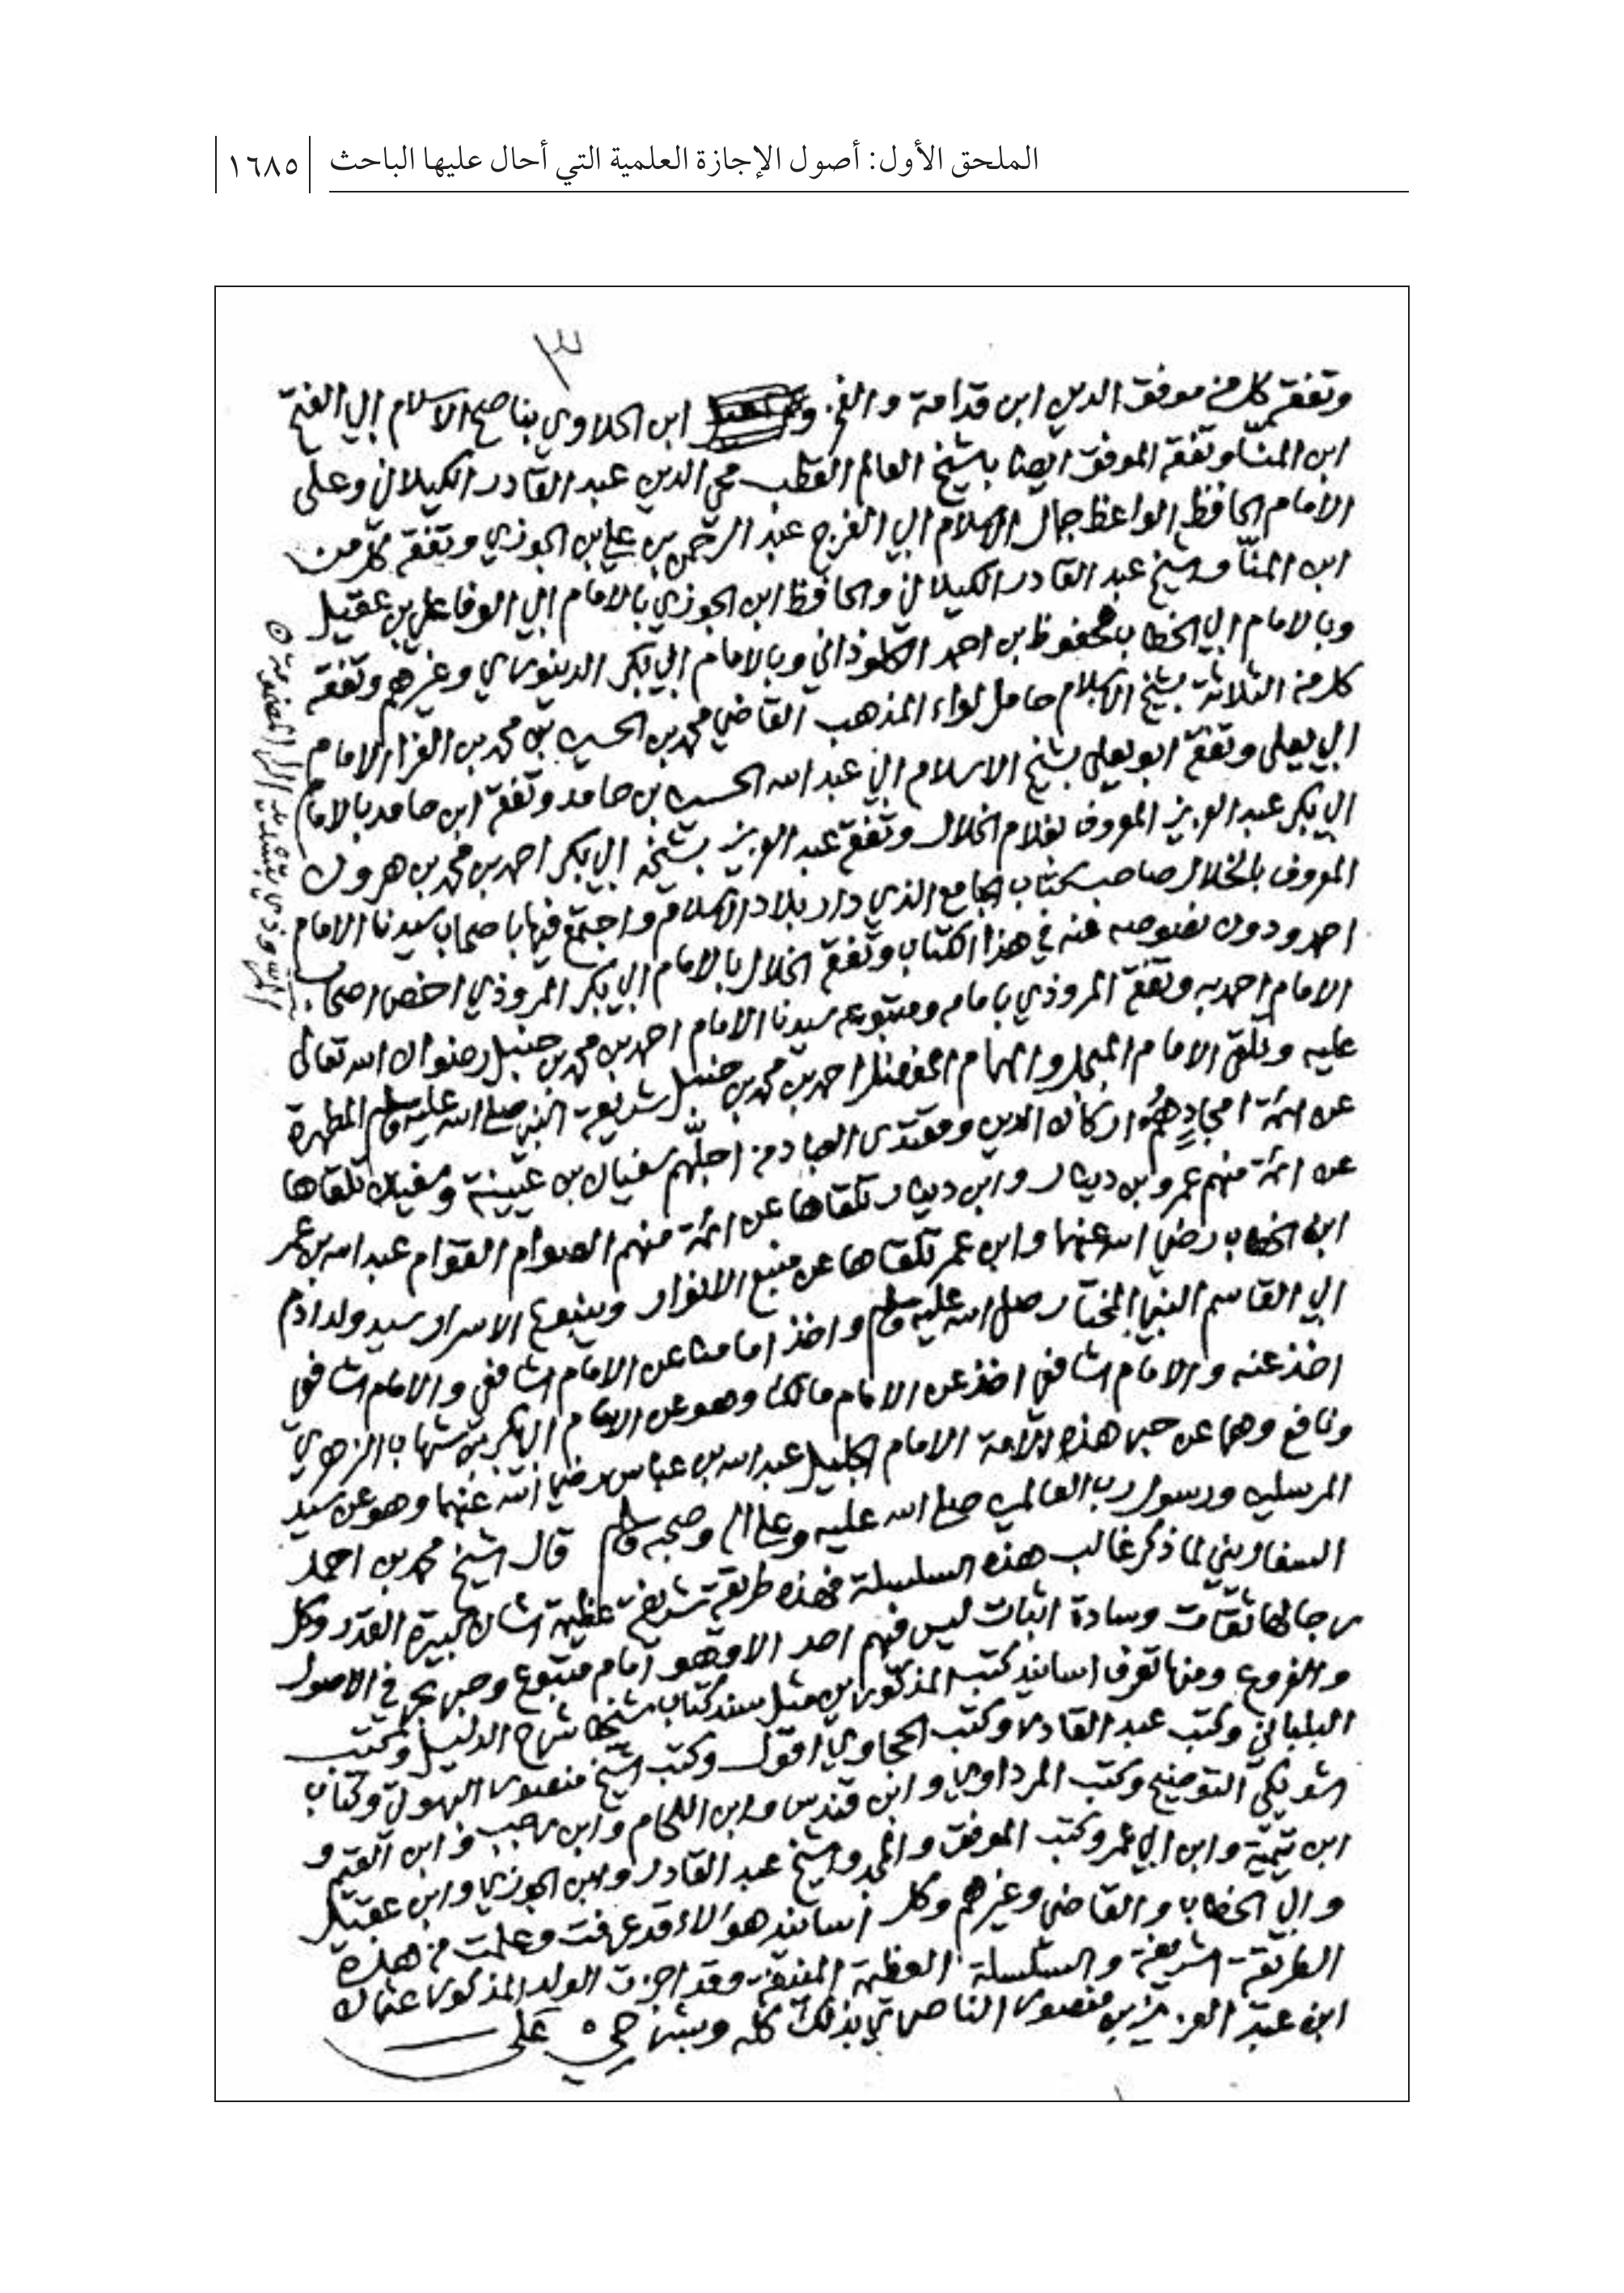 الملحق الأول: أصول الإجازة العلمية التي أحال عليها الباحث
١٦٨٥
٣
وتفقه كل من موفق الدين ابن قدامة والفخر و ابن الحلاوي بناصح الاسلام ابي الفتح
ابن المنّا وتفقه الموفق ايضا بالشيخ العالم القطب محي الدين عبد القادر الكيلاني وعلى
الامام الحافظ الواعظ جمال الاسلام ابي الفرج عبد الرحمن بن علي بن الجوزي وتفقه كل من
ابن المنّا والشيخ عبد القادر الكيلاني والحافظ ابن الجوزي بالامام ابي الوفا علي بن عقيل
وبالامام ابي الخطاب محفوظ بن احمد الكلوذاني وبالامام ابي بكر الدينوري وغيرهم وتفقه
كل من الثلاثة بشيخ الاسلام حامل لواء المذهب القاضي محمد بن الحسين بن محمد بن الفرا الامام
ابي يعلى وتفقه ابو يعلى بشيخ الاسلام ابي عبد الله الحسن بن حامد وتفقه ابن حامد بالامام
ابي بكر عبد العزيز المعروف بغلام الخلال وتفقه عبد العزيز بشيخه ابي بكر احمد بن محمد بن هرون
المعروف بالخلال صاحب كتاب الجامع الذي دار بلاد الاسلام واجتمع فيها باصحاب سيدنا الامام
احمد ودون نصوصه عنه في هذا الكتاب وتفقه الخلال بالامام ابي بكر المروذي اخص اصحاب
الامام احمد به وتفقه المروذي بامامه ومتبوعه سيدنا الامام احمد بن محمد بن حنبل رضوان الله تعالى
عليه وتلقى الامام المبجل والهمام المفضل احمد بن محمد بن حنبل شريعة النبي صلى الله عليه وسلم المطهرة
عن ائمة امجادٍ هُم اركان الدين ومقتدى العباد من اجلّهم سفيان بن عيينة وسفيان تلقاها
عن ائمة منهم عمرو بن دينار وابن دينار تلقاها عن ائمة منهم الصوام القوام عبد الله بن عمر
ابن الخطاب رضي الله عنهما وابن عمر تلقاها عن منبع الانوار وينبوع الاسرار سيد ولد ادم
ابي القاسم النبي المختار صلى الله عليه وسلم واخذ امامنا عن الامام الشافعي والامام الشافعي
اخذ عنه والامام الشافعي اخذ عن الامام مالك وهو عن الامام ابي بكر بن شهاب الزهري
ونافع وهما عن حبر هذه الامة الامام الجليل عبد الله بن عباس رضي الله عنهما وهو عن سيد
المرسلين ورسول رب العالمين صلى الله عليه وعلى اله وصحبه وسلم قال الشيخ محمد بن احمد
السفاريني لما ذكر غالب هذه السلسلة فهذه طريقة شريفة عظيمة الشان كبيرة القدر وكل
رجالها ثقات وسادة اثبات ليس فيهم احد الا وهو امام متبوع وحبر بحر في الاصول
والفروع ومنها تعرف اسانيد كتب المذكورين مثل سند كتاب شيخنا شارح الدليل وكتب
البلباني وكتب عبد القادر وكتب الحجاوي اقول وكتب الشيخ منصور البهوتي وكتاب
الشويكي التوضيح وكتب المرداوي وابن قندس وابن اللحام وابن رجب وابن القيم و
ابن تيمية وابن ابي عمر وكتب الموفق والمجد والشيخ عبد القادر وابن الجوزي وابن عقيل
وابي الخطاب والقاضي وغيرهم وكل اسانيد هؤلاء قد عرفت وعلمت من هذه
الطريقة الشريفة والسلسلة العظيمة المنيفة وقد اجزت الولد المذكور عثمان
ابن عبد العزيز بن منصور الناصري بذلك كله وبشرحي على
المروذي بتشديد الراء المضمومة